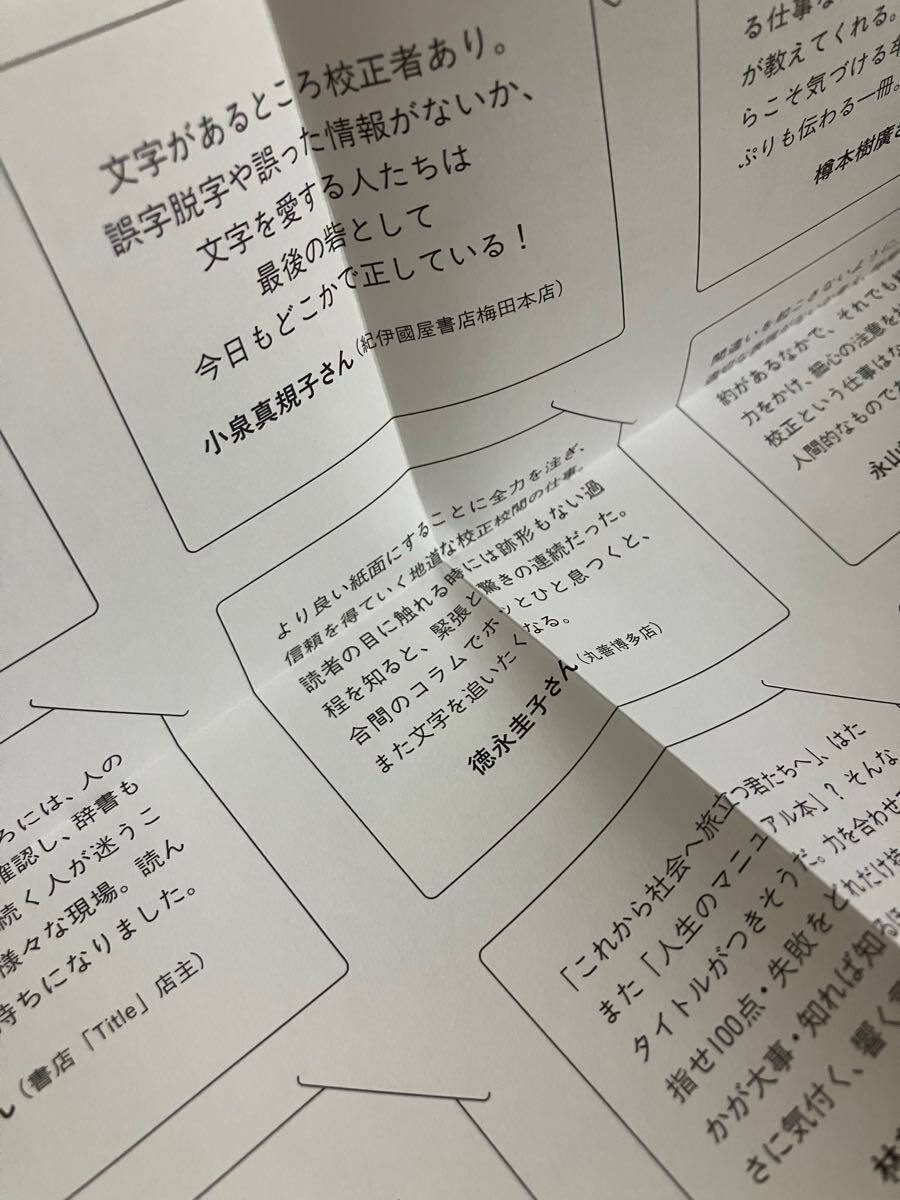 文字があるところ校正者あり。
誤字脱字や誤った情報がないか、
文字を愛する人たちは
最後の砦として
今日もどこかで正している！
小泉真規子さん（紀伊國屋書店梅田本店）
る仕事な
が教えてくれる。
らこそ気づける
ぷりも伝わる一冊。
樽本樹廣さ
間違いを起こさないように
約があるなかで、それでも
力をかけ、細心の注意を
校正という仕事はな
人間的なものでは
永山
より良い紙面にすることに全力を注ぎ、
信頼を得ていく地道な校正校閲の仕事。
読者の目に触れる時には跡形もない過
程を知ると、緊張と驚きの連続だった。
合間のコラムでホッとひと息つくと、
また文字を追いたくなる。
徳永圭子さん（丸善博多店）
ろには、人の
確認し、辞書も
続く人が迷うこ
様々な現場。読ん
持ちになりました。
ん（書店「Title」店主）
「これから社会へ旅立つ君たちへ」、はた
また「人生のマニュアル本」？そんな
タイトルがつきそうだ。力を合わせて
指せ100点・失敗をどれだけ
かが大事・知れば知るほ
さに気付く、響く